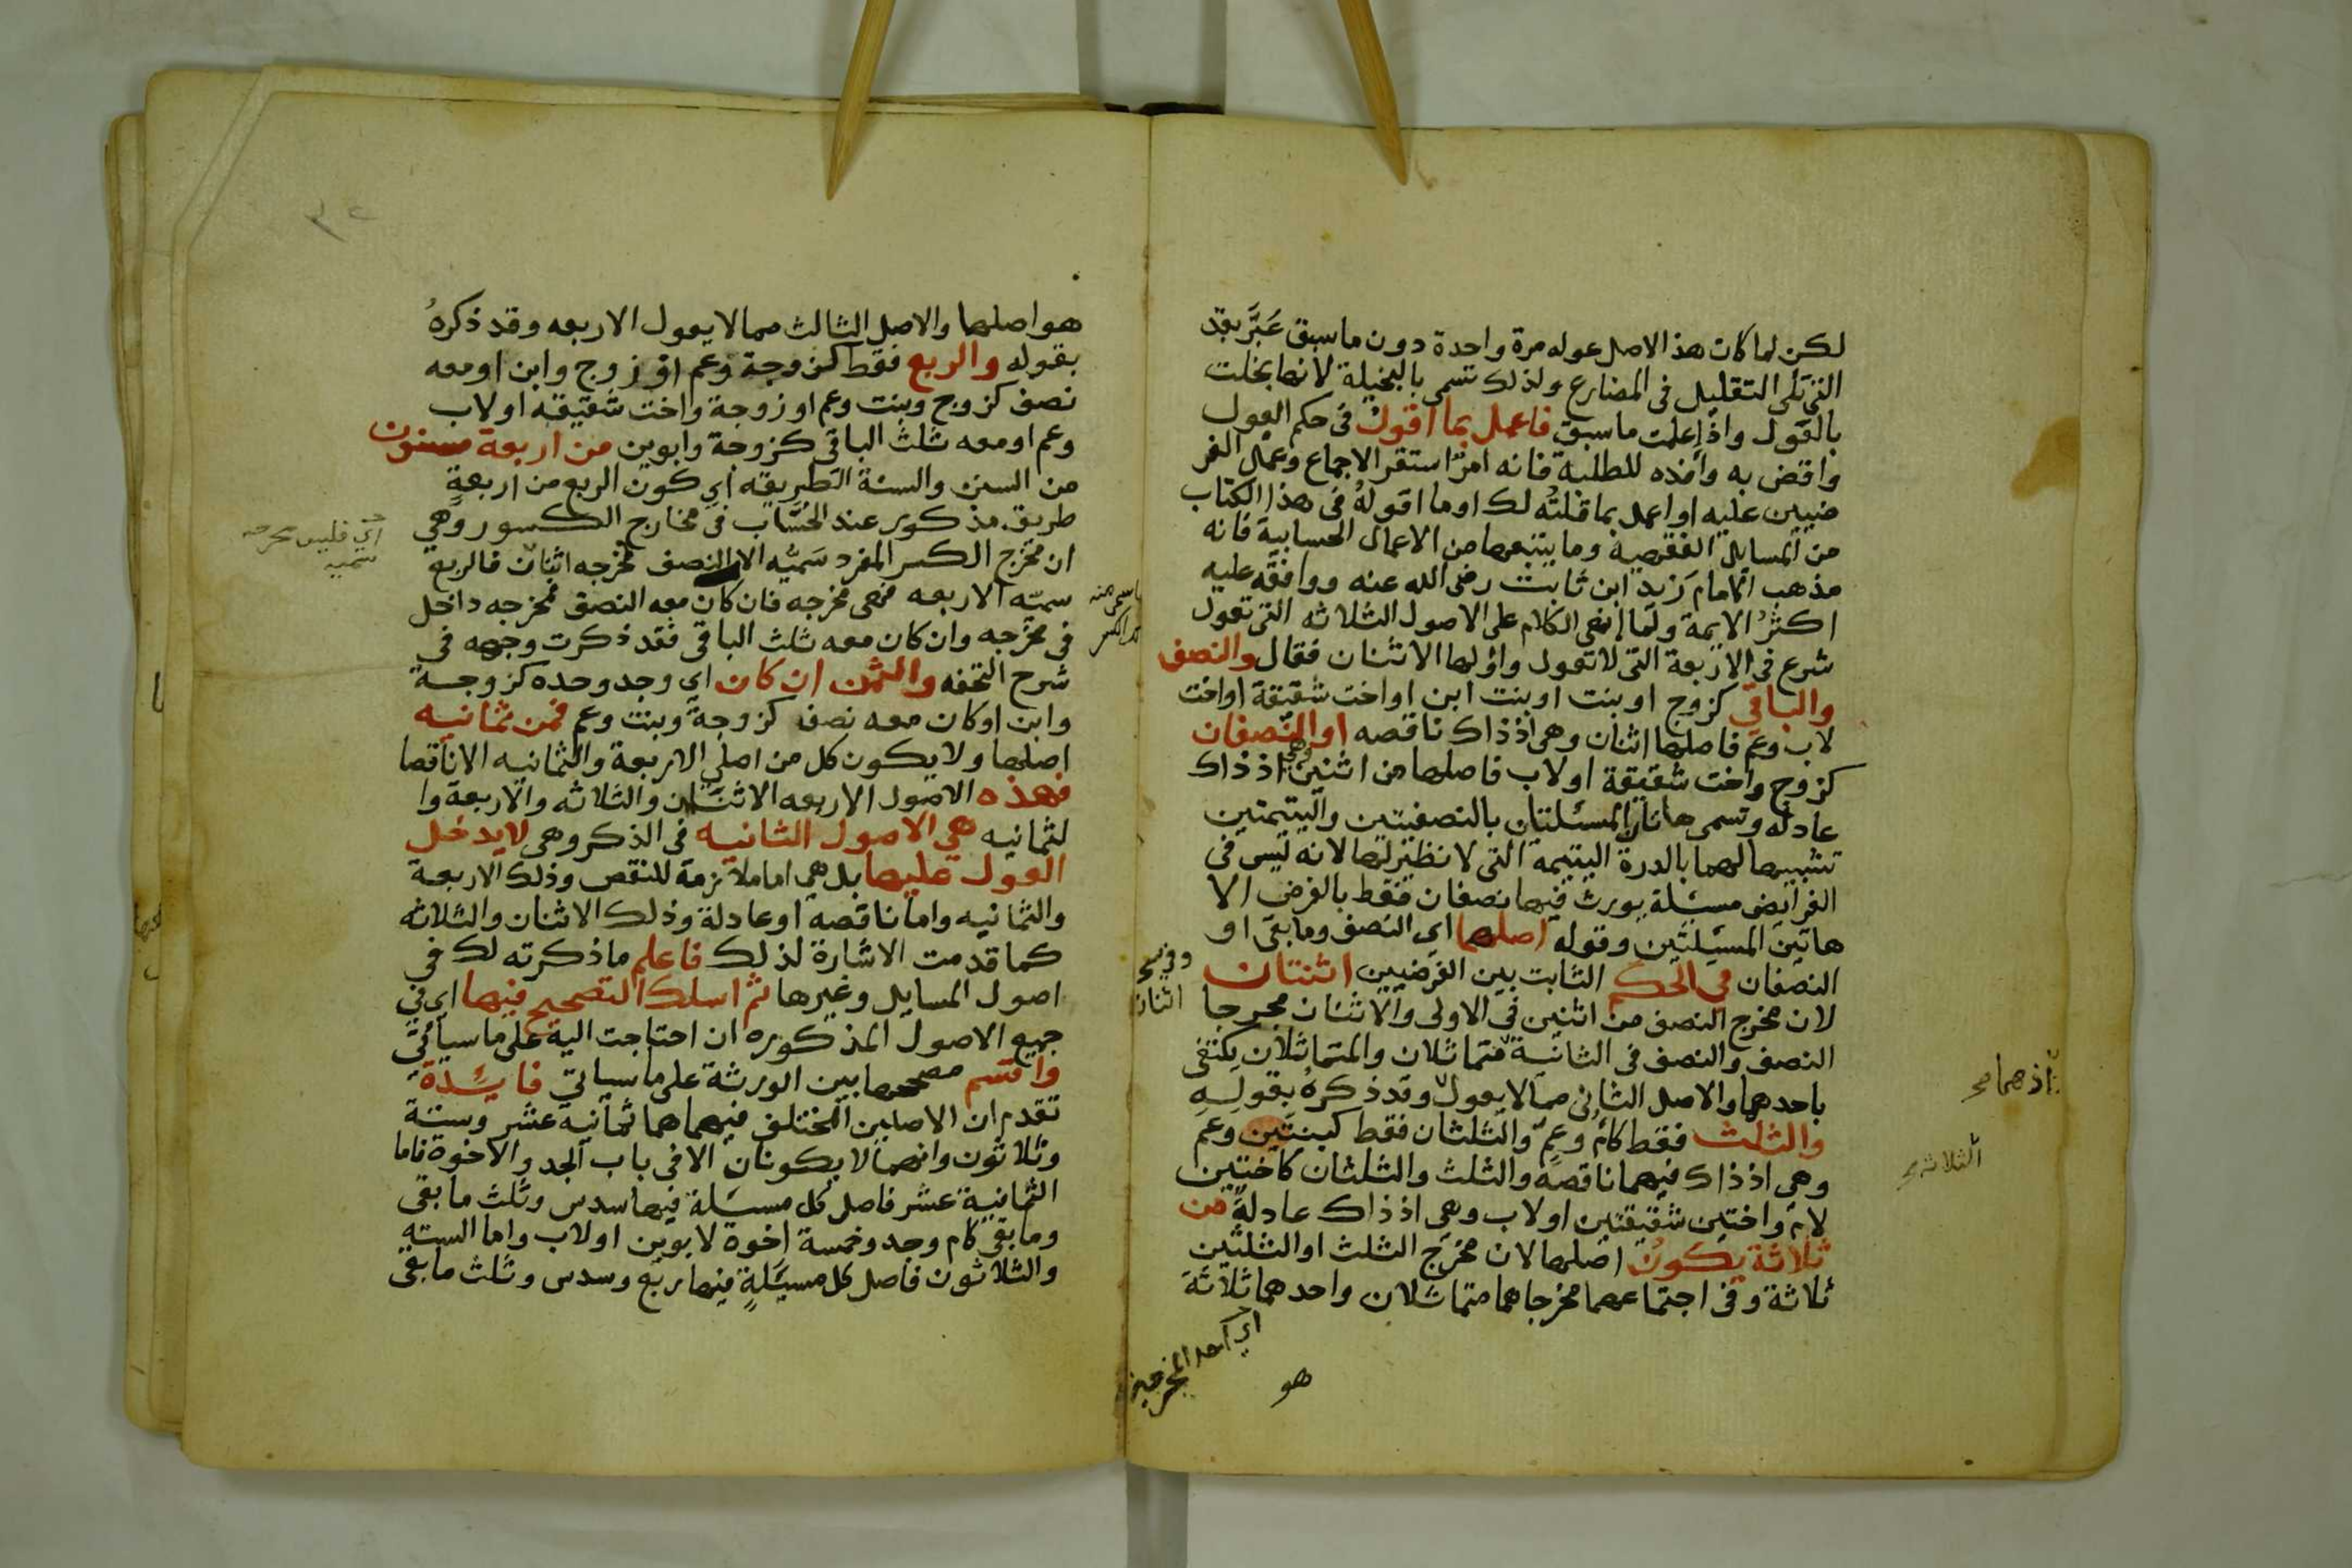 لكن لما كان هذا الاصل عوله مرة واحدة دون ما سبق عَبَّر بقد
التي تلى التقليل فى المضارع ولذلك تسمى بالبخيلة لانها بخلت
بالعول واذا علمت ما سبق فاعمل بما اقول فى حكم العول
واقض به وافده للطلبة فانه امر استقر الاجماع وعمل الفر
ضيين عليه او اعمل بما قلته لك او ما اقوله فى هذا الكتاب
من المسايل الفقهية وما يتبعها من الاعمال الحسابية فانه
مذهب الامام زيد ابن ثابت رضى الله عنه ووافقه عليه
اكثرُ الايمة ولما انهى الكلام على الاصول الثلاثه التى تعول
شرع فى الاربعة التى لا تعول واولها الاثنان فقال والنصف
والباقي كزوج او بنت او بنت ابن او اخت شقيقة او اخت
لاب وعم فاصلها اثنان وهى اذ ذاك ناقصه او النصفان
كزوج واخت شقيقة او لاب فاصلها من اثنين وهى اذ ذاك
عادله وتسمى هاتان المسئلتان بالنصفيتين واليتيمتين
تشبيها لهما بالدرة اليتيمة التى لا نظير لها لانه ليس فى
الفرايض مسئلة يورث فيها نصفان فقط بالفرض الا
هاتين المسئلتين وقوله اصلهما اي النصف وما بقى او
النصفان في الحكم الثابت بين الفرضيين اثنتان
وفي نسخ
اثنان
لان مخرج النصف من اثنين في الاولى والاثنان مخرجا
النصف والنصف فى الثانية متماثلان والمتماثلان يكتفى
باحدهما والاصل الثانى مما لا يعول وقد ذكره بقوله
اذ هما صح
والثلث فقط كام وعم والثلثان فقط كبنتين وعم
وهى اذ ذاك فيهما ناقصه والثلث والثلثان كاختين
الثلاثة
لام واختين شقيقتين او لاب وهي اذ ذاك عادلة من
ثلاثة يكون اصلها لان مخرج الثلث او الثلثين
ثلاثة وفى اجتماعهما مخرجاهما متماثلان واحدهما ثلاثة
اي احد المخرجين
هو
هو اصلها والاصل الثالث مما لا يعول الاربعه وقد ذكرهُ
بقوله والربع فقط كزوجة وعم او زوج وابن او معه
نصف كزوج وبنت وعم او زوجة واخت شقيقه او لاب
وعم او معه ثلث الباقى كزوجة وابوين من اربعة مسنون
من السنن والسنة الطريقه اي كون الربع من اربعةٍ
طريق مذكور عند الحُسَّاب فى مخارج الكسور وهي
ان مخرج الكسر المفرد سَميُّه الا النصف فمخرجه اثنان فالربع
اي فليس مخرجه
سميه
سميّه الاربعه فهى مخرجه فان كان معه النصف فمخرجه داخل
فى مخرجه وان كان معه ثلث الباقى فقد ذكرت وجهه فى
شرح التحفه والثمن ان كان اي وجد وحده كزوجة
وابن او كان معه نصف كزوجة وبنت وعم فمن ثمانيه
اصلها ولا يكون كل من اصلي الاربعة والثمانيه الا ناقصا
فهذه الاصول الاربعه الاثنان والثلاثه والاربعة وا
لثمانيه هي الاصول الثانيه فى الذكر وهى لا يدخل
العول عليها بل هى اما ملازمة للنقص وذلك الاربعة
والثمانيه واما ناقصة او عادلة وذلك الاثنان والثلاثه
كما قدمت الاشارة لذلك فاعلم ما ذكرته لك فى
اصول المسايل وغيرها ثم اسلك التصحيح فيها اي في
جميع الاصول المذكوره ان احتاجت اليه على ما سيأتي
واقسم مصححها بين الورثة على ما سياتي فايدة
تقدم ان الاصلين المختلف فيهما هما ثمانية عشر وستة
وثلاثون وانهما لا يكونان الا فى باب الجد والاخوة فاما
الثمانية عشر فاصل كل مسئلة فيها سدس وثلث ما بقى
وما بقى كام وجد وخمسة اخوة لابوين او لاب واما الستة
والثلاثون فاصل كل مسئلةٍ فيها ربع وسدس وثلث ما بقى